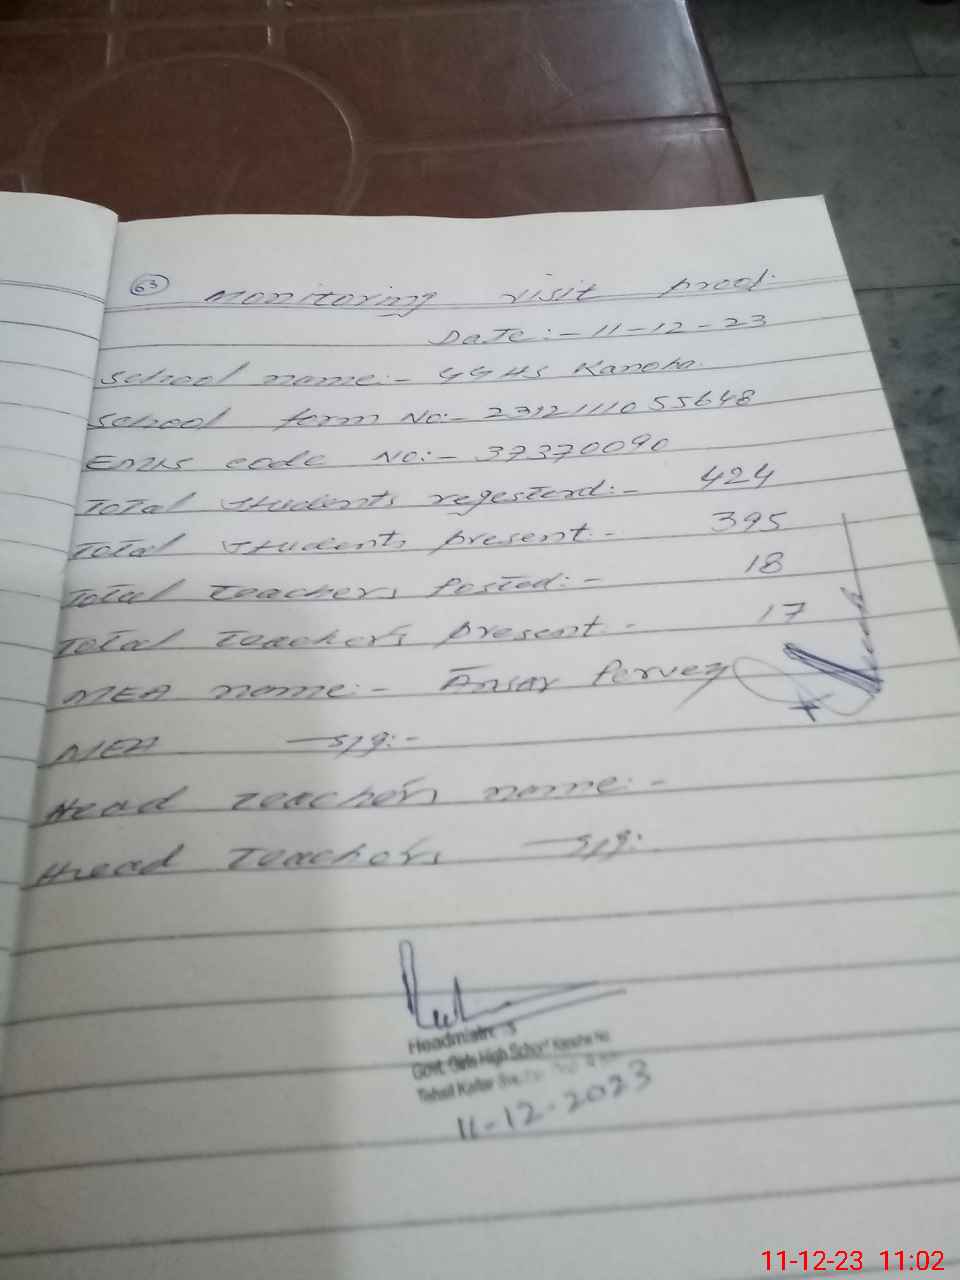 63
Monitoring visit proof.
Date:- 11-12-23
School name:- GGHS Kanoha.
School form No:- 2312111055648
Emis code No:- 37370090
Total students regesterd:- 424
Total students present:- 395
Total Teachers Posted:- 18
Total Teachers present:- 17
MEA name:- Ansar Pervez
MEA sig:-
Head Teachers name:-
Head Teachers sig:
Headmistress
Govt. Girls High School
Tehsil Kallar
11-12-2023
11-12-23 11:02